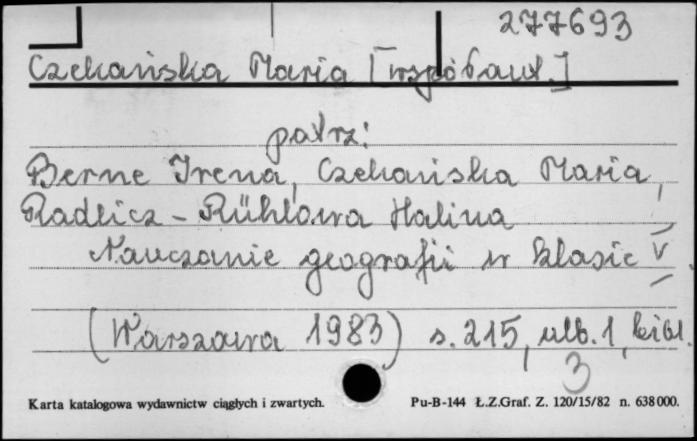 277693
Czekańska Maria [współaut.]
patrz:
Berne Irena, Czekańska Maria,
Radlicz-Rühlowa Halina
Nauczanie geografii w klasie V.
(Warszawa 1983) s. 215, nlb. 1, bibl.
3
Karta katalogowa wydawnictw ciągłych i zwartych. Pu-B-144 Ł.Z.Graf. Z. 120/15/82 n. 638000.